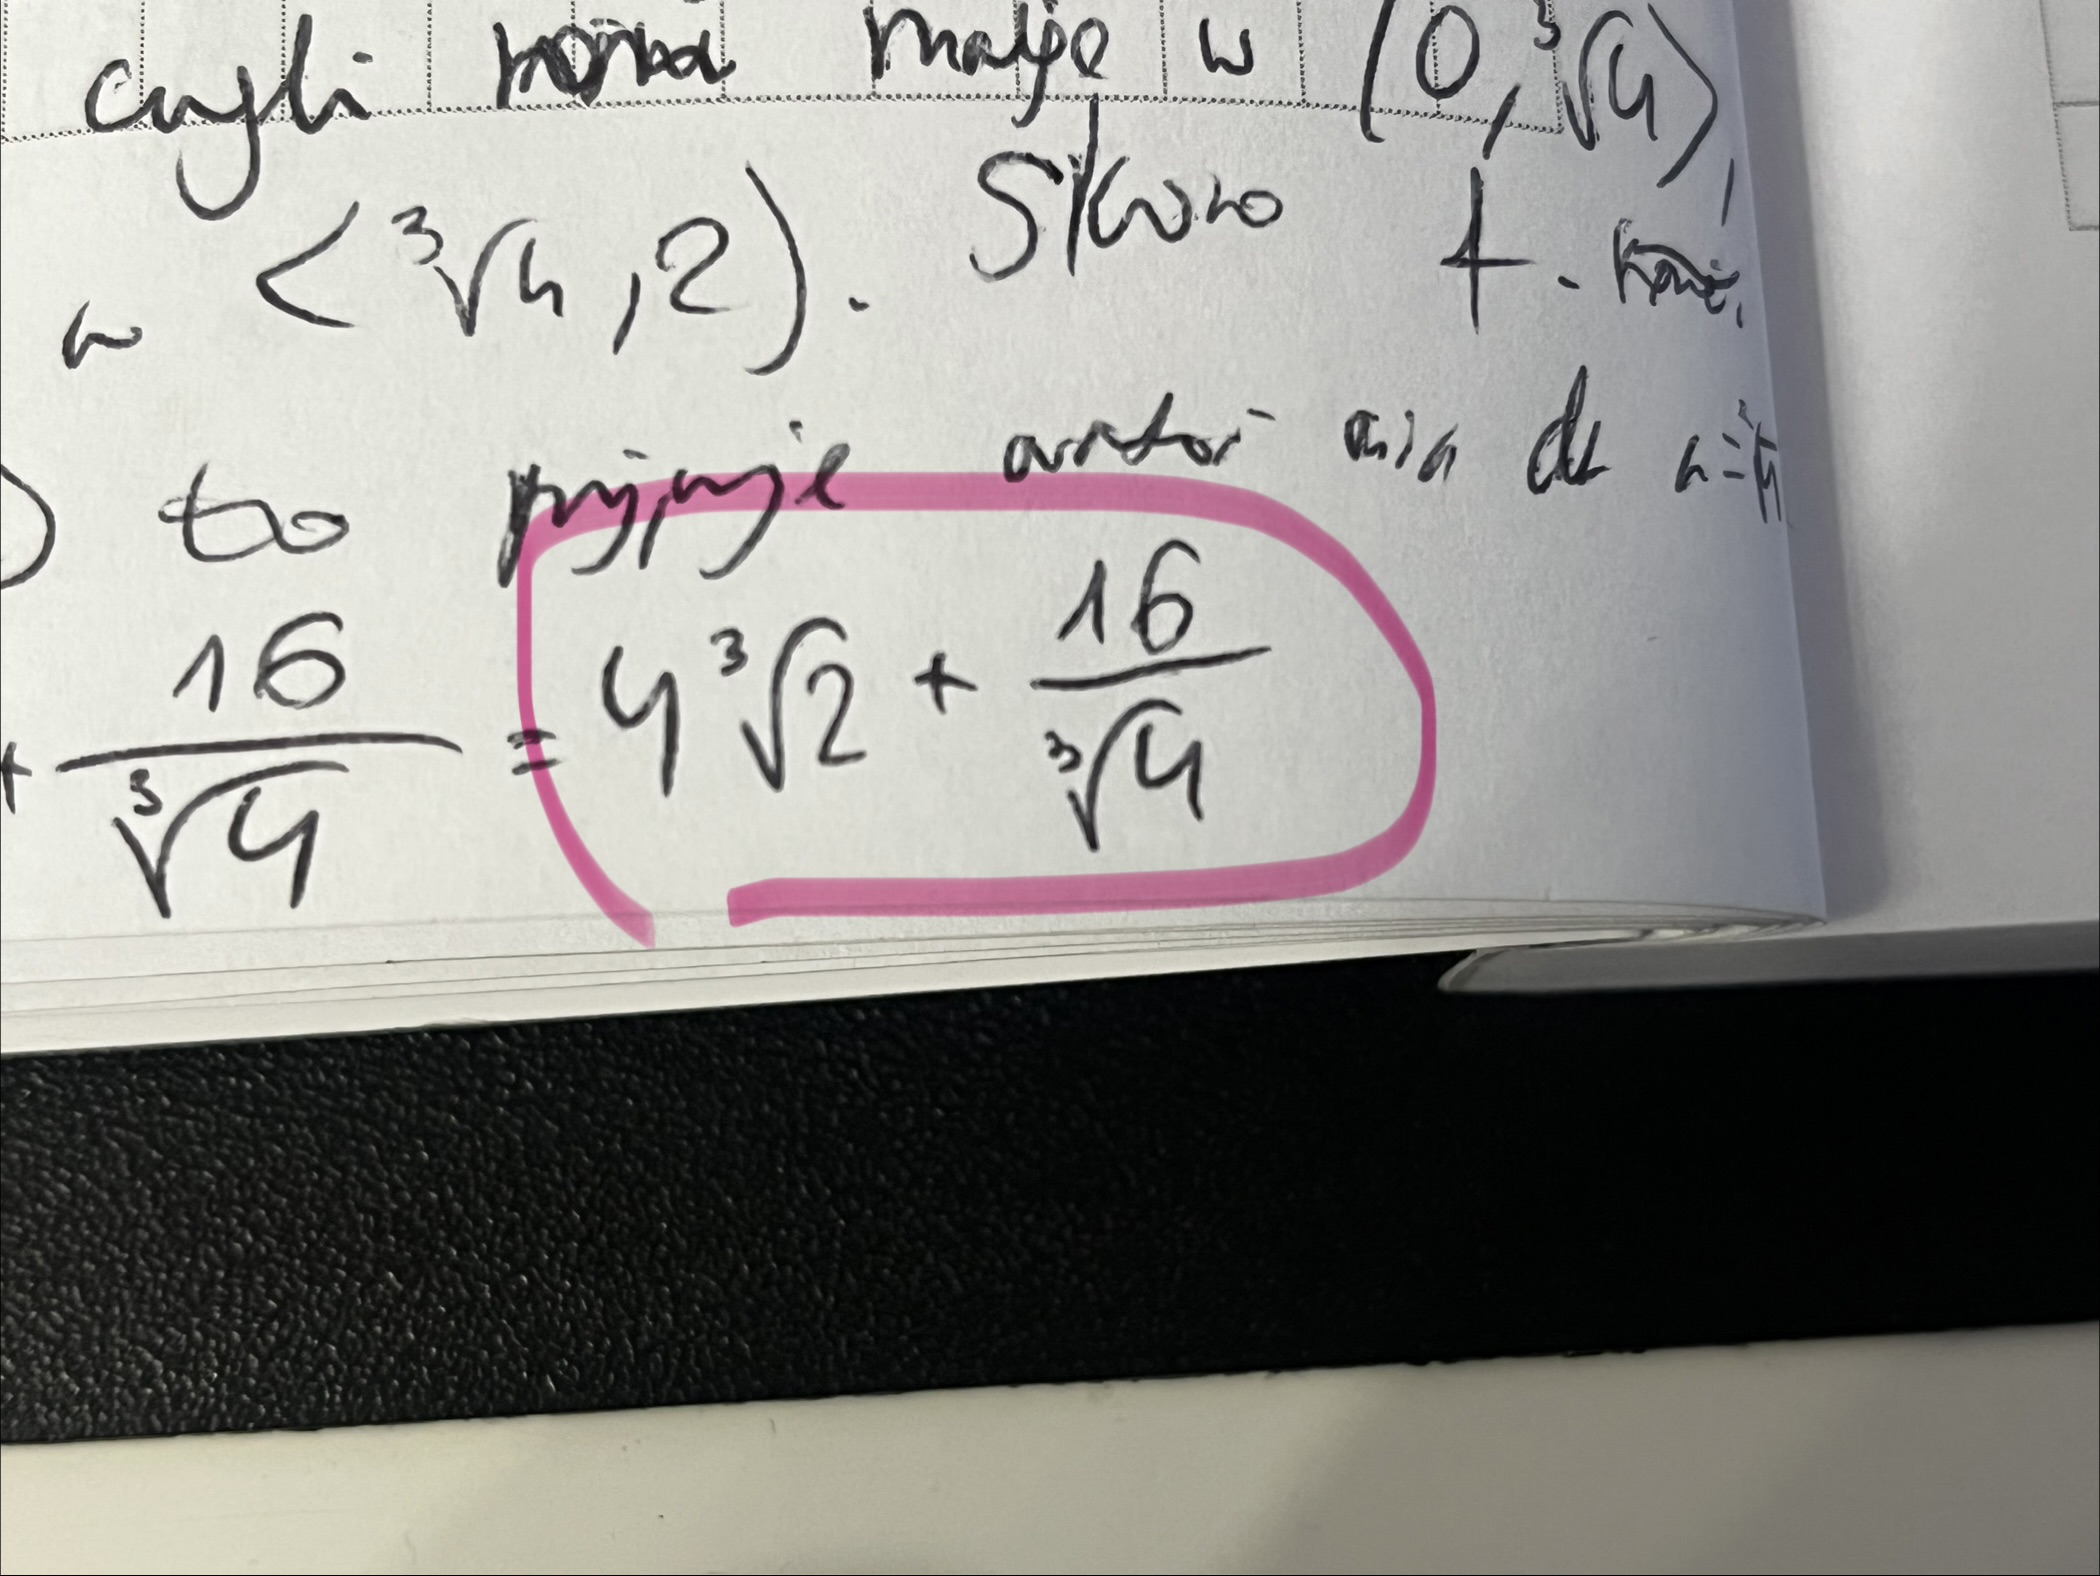 czyli można maleje w (0, ³√4),
w <³√4, 2). Skoro f.
) to przyjmuje wartość min dla a=³√4
+ 16/³√4 = 4³√2 + 16/³√4